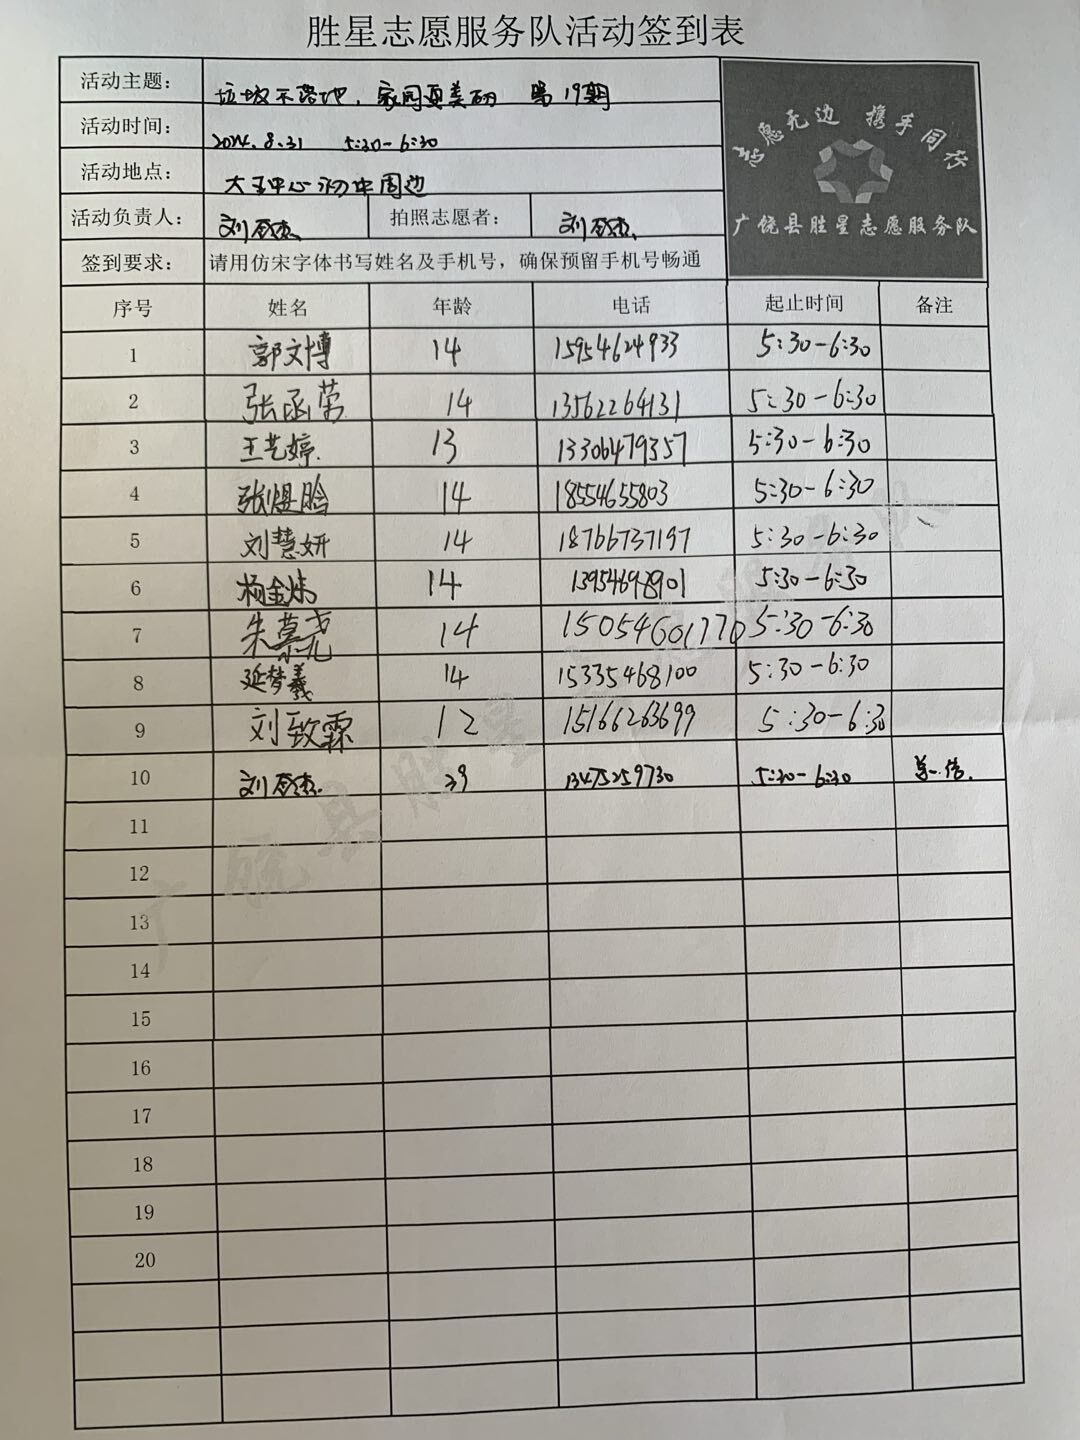 胜星志愿服务队活动签到表
活动主题： 垃圾不落地，家园更美丽 第19期
志愿无边 携手同行
活动时间： 2024.8.31 5:30-6:30
活动地点： 大王中心初中周边
广饶县胜星志愿服务队
活动负责人： 刘 拍照志愿者： 刘
签到要求： 请用仿宋字体书写姓名及手机号，确保预留手机号畅通
序号 姓名 年龄 电话 起止时间 备注
1 郭文博 14 15954624933 5:30-6:30
2 张函荣 14 13562264131 5:30-6:30
3 王艺婷 13 13306479357 5:30-6:30
4 张煜晗 14 18554655803 5:30-6:30
5 刘慧妍 14 18766737197 5:30-6:30
6 杨金 14 13954698901 5:30-6:30
7 朱慕尧 14 15054601770 5:30-6:30
8 延梦羲 14 15335468100 5:30-6:30
9 刘致霖 12 15166263699 5:30-6:30
10 刘 39 13475259730 5:30-6:30
11
12
13
14
15
16
17
18
19
20
广饶县胜星志愿服务队